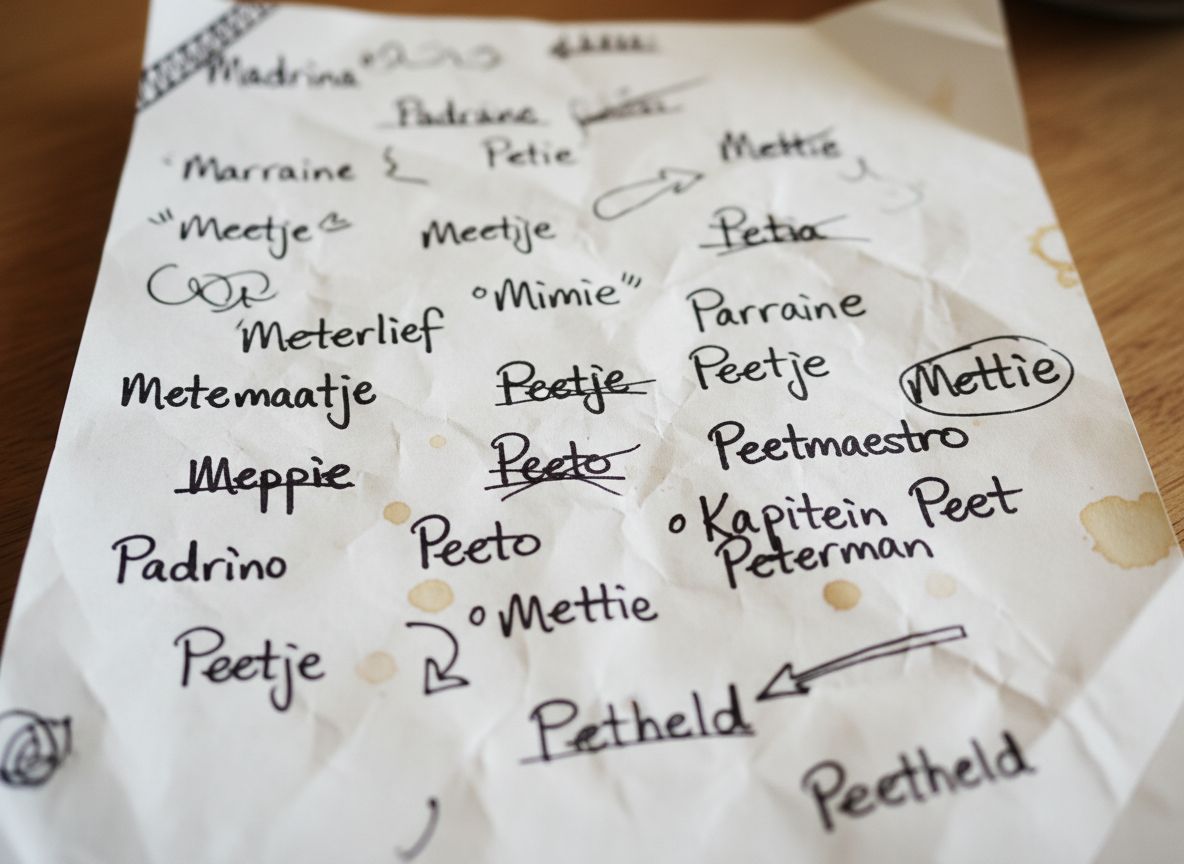 Madrina
Padrane
Marraine Petie Mettie
"Meetje Meetije Petia
"Mimie" Parraine
Meterlief
Metemaatje Peetje Peetje Mettie
Meppie Peeto Peetmaestro
Kapitein Peet
Padrino Peeto Peterman
Mettie
Peetje
Petheld
Peetheld